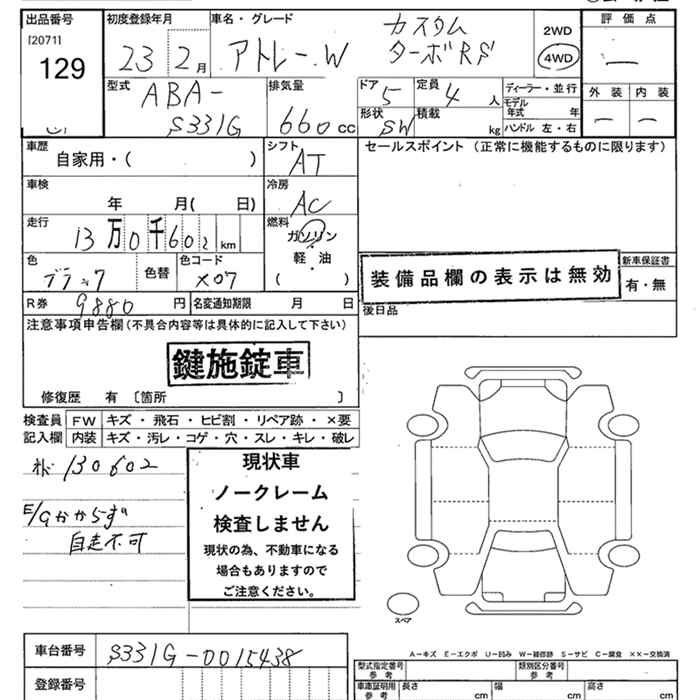 出品番号
[20711]
129
初度登録年月
23 2月
車名・グレード
アトレーW
カスタム
ターボRS
2WD
4WD
評価点
—
外装 内装
— —
型式
ABA-
S331G
排気量
660cc
ドア
5
定員
4人
ディーラー・並行
モデル
年式 年
形状
SW
積載
kg
ハンドル 左・右
車歴
自家用・( )
シフト
AT
セールスポイント (正常に機能するものに限ります)
車検
年 月( 日)
冷房
AC
走行
13万0千602km
燃料
ガソリン
・
軽・油
( )
色
ブラック
色替
色コード
X07
装備品欄の表示は無効
新車保証書
有・無
R券
9880円
名変通知期限 月 日
後日品
注意事項申告欄(不具合内容等は具体的に記入して下さい)
鍵施錠車
修復歴 有〔箇所 〕
検査員
記入欄
FW キズ・飛石・ヒビ割・リペア跡・×要
内装 キズ・汚レ・コゲ・穴・スレ・キレ・破レ
130602
E/Gかからず
自走不可
現状車
ノークレーム
検査しません
現状の為、不動車になる
場合もありますので
ご注意ください。
スペア
A－キズ E－エクボ U－凹み W－補修跡 S－サビ C－腐食 ××－交換済
車台番号
S331G-0015438
登録番号
型式指定番号
参考
類別区分番号
参考
車庫証明用
参考
長さ cm
幅 cm
高さ cm